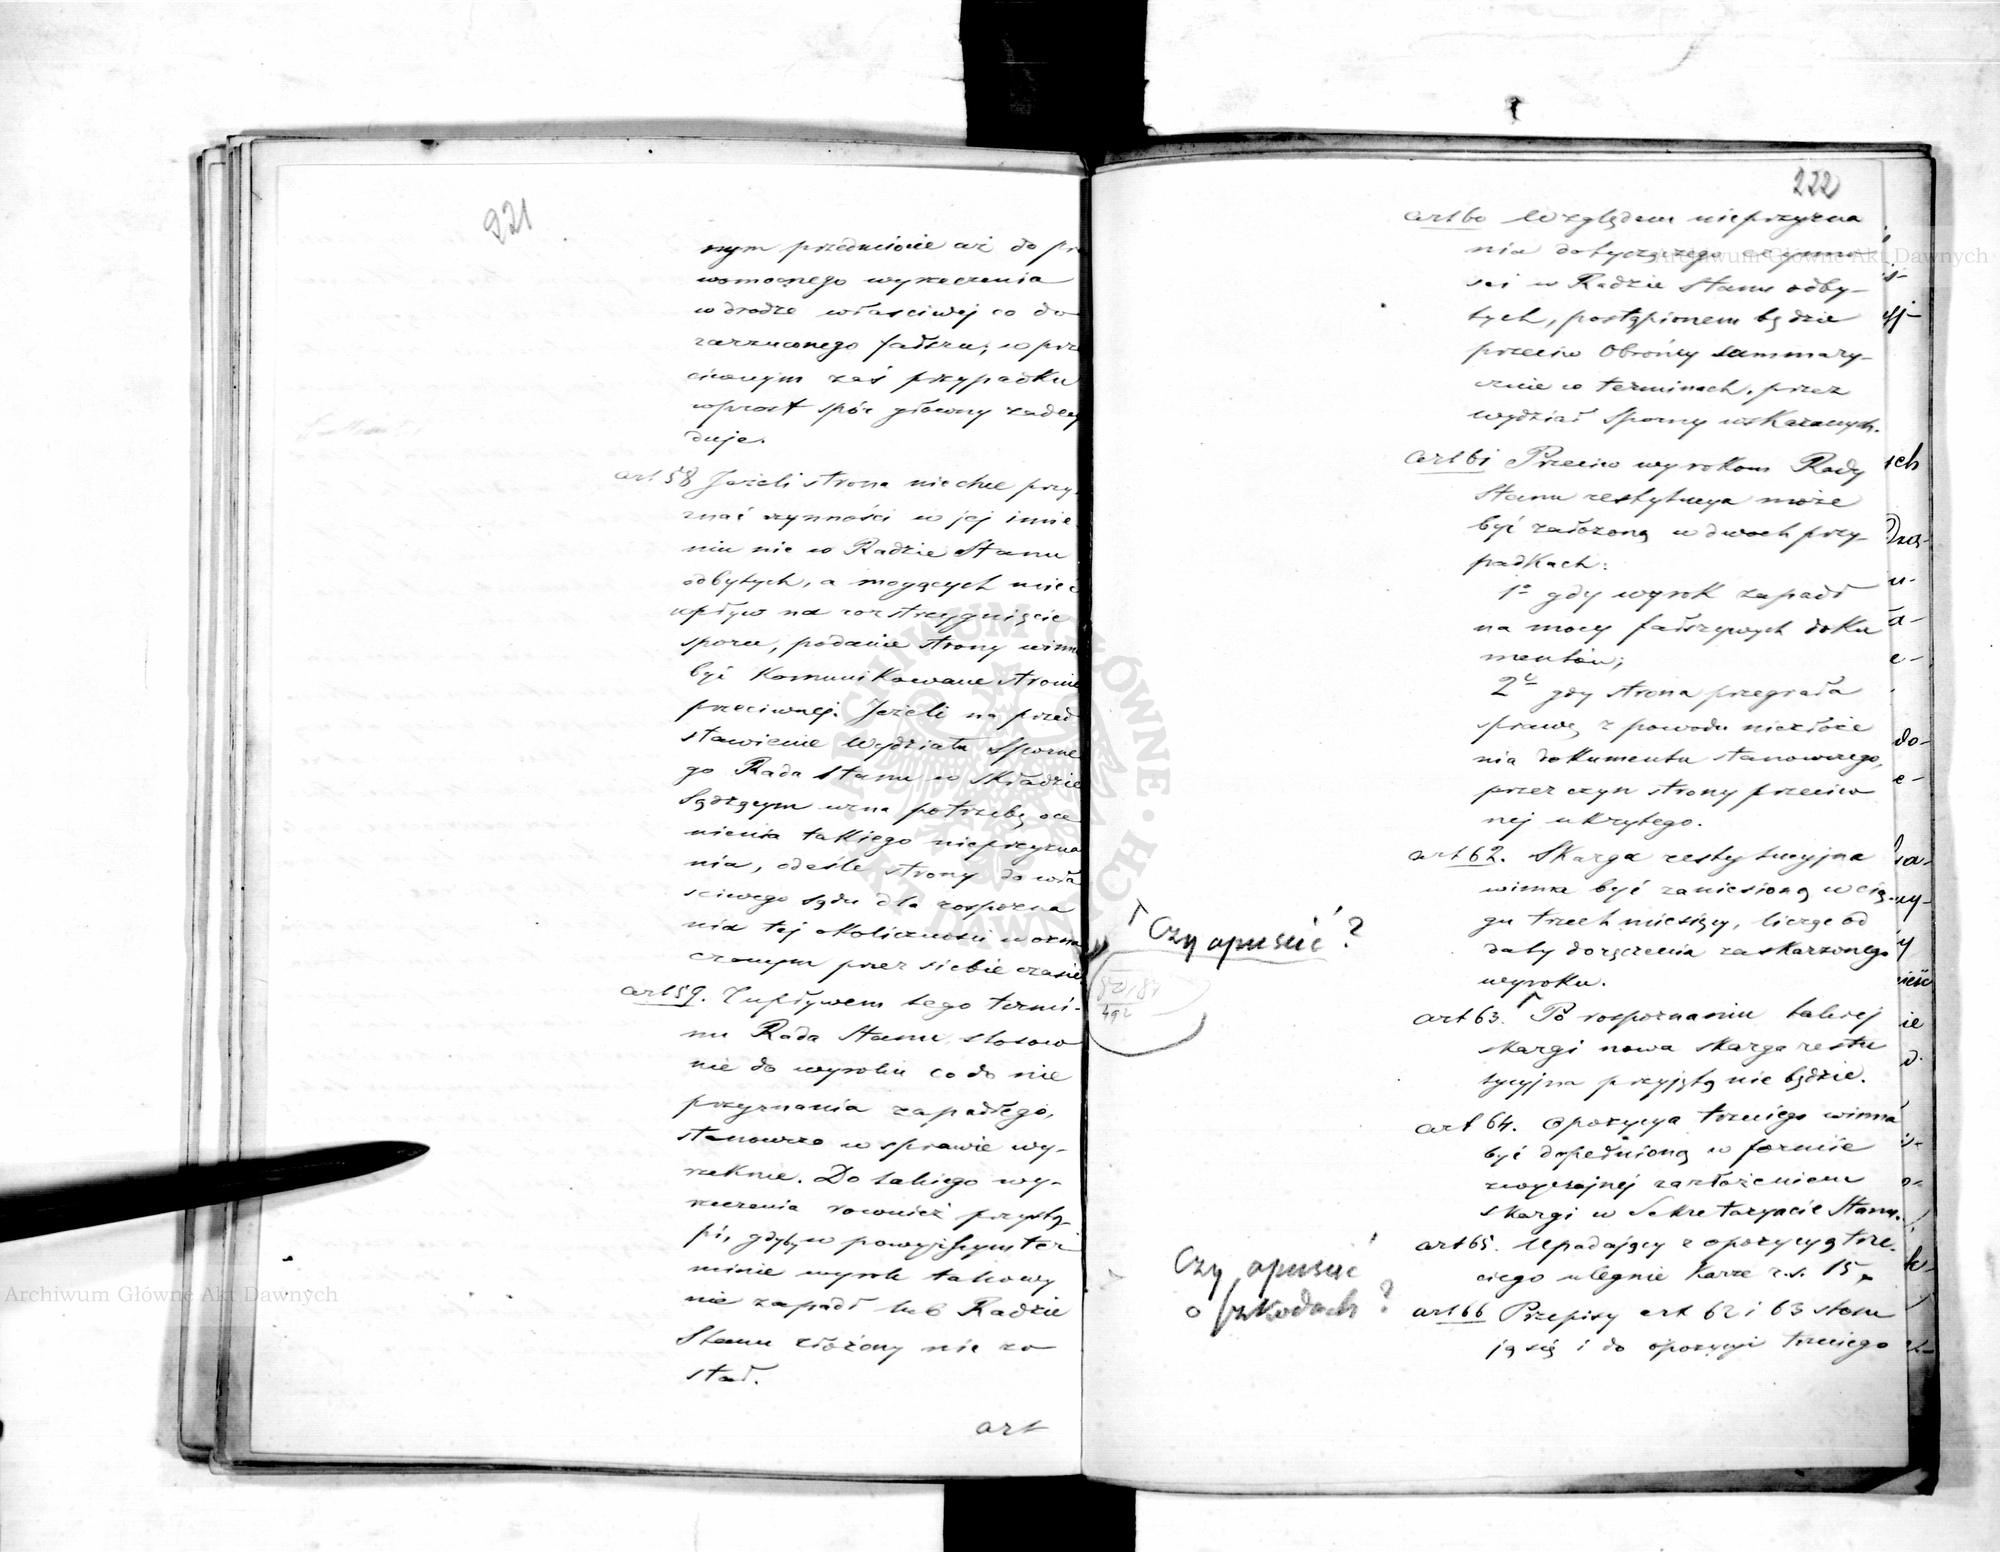 221
nym przedmiocie aż do pra
womocnego wyrzeczenia
w drodze właściwej co do
zarzuconego fałszu; w prze
ciwnym zaś przypadku
wprost spór główny zadecy
duje.
art 58 Jeżeli strona nie chce przy-
znać czynności w jej imie
niu nie w Radzie Stanu
odbytych, a mogących mieć
wpływ na rozstrzygnięcie
sporu, podanie strony winno
być Komunikowane stronie
przeciwnej. Jeżeli na przed
stawienie Wydziału Sporne
go Rada Stanu w Składzie
Sądzącym uzna potrzebę oce
nienia takiego nieprzyzna
nia, odeśle strony do wła
sciwego sądu dla rozpozna
nia tej okoliczności w ozna
czonym przez siebie czasie.
art 59. Z upływem tego termi-
nu Rada Stanu stosow
nie do wyroku co do nie
przyznania zapadłego,
stanowczo w sprawie wy-
rzeknie. Do takiego wy-
rzeczenia rownież przystą
pi, gdyby w powyższym ter
minie wyrok takowy
nie zapadł lub Radzie
Stanu złożony nie zo
stał.
art
222
art 60 Względem nieprzyzna
nia dotyczącego czynno
sci w Radzie Stanu odby-
tych, postąpionem będzie
przeciw Obrońcy summary-
cznie w terminach, przez
wydział Sporny wskazanych.
art 61 Przeciw wyrokom Rady
Stanu restytucya może
być założoną w dwoch przy-
padkach:
1o gdy wyrok zapadł
na mocy fałszywych doku
mentów;
2o gdy strona przegrała
sprawę z powodu niezłoże
nia dokumentu stanowczego,
przez czyn strony przeciw
nej ukrytego.
art 62. Skarga restytucyjna
winna być zaniesioną w cią-
gu trzech miesięcy, licząc od
daty doręczenia zaskarżonego
wyroku.
Czy opuścić?
art 63. Po rozpoznaniu takiej
skargi nowa skarga restu
tycyjna przyjętą nie będzie.
art 64. Opozycya trzeciego winna
być dopełnioną w formie
zwyczajnej założeniem
skargi w Sekretaryacie Stanu.
art 65. Upadający z opozycyą trze-
ciego ulegnie Karze r.s. 15.
Czy opuścić
o szkodach?
art 66 Przepisy art 62 i 63 stosu
ją się i do opozycyi trzeciego
Archiwum Główne Akt Dawnych
Archiwum Główne Akt Dawnych
ARCHIWUM GŁÓWNE AKT DAWNYCH